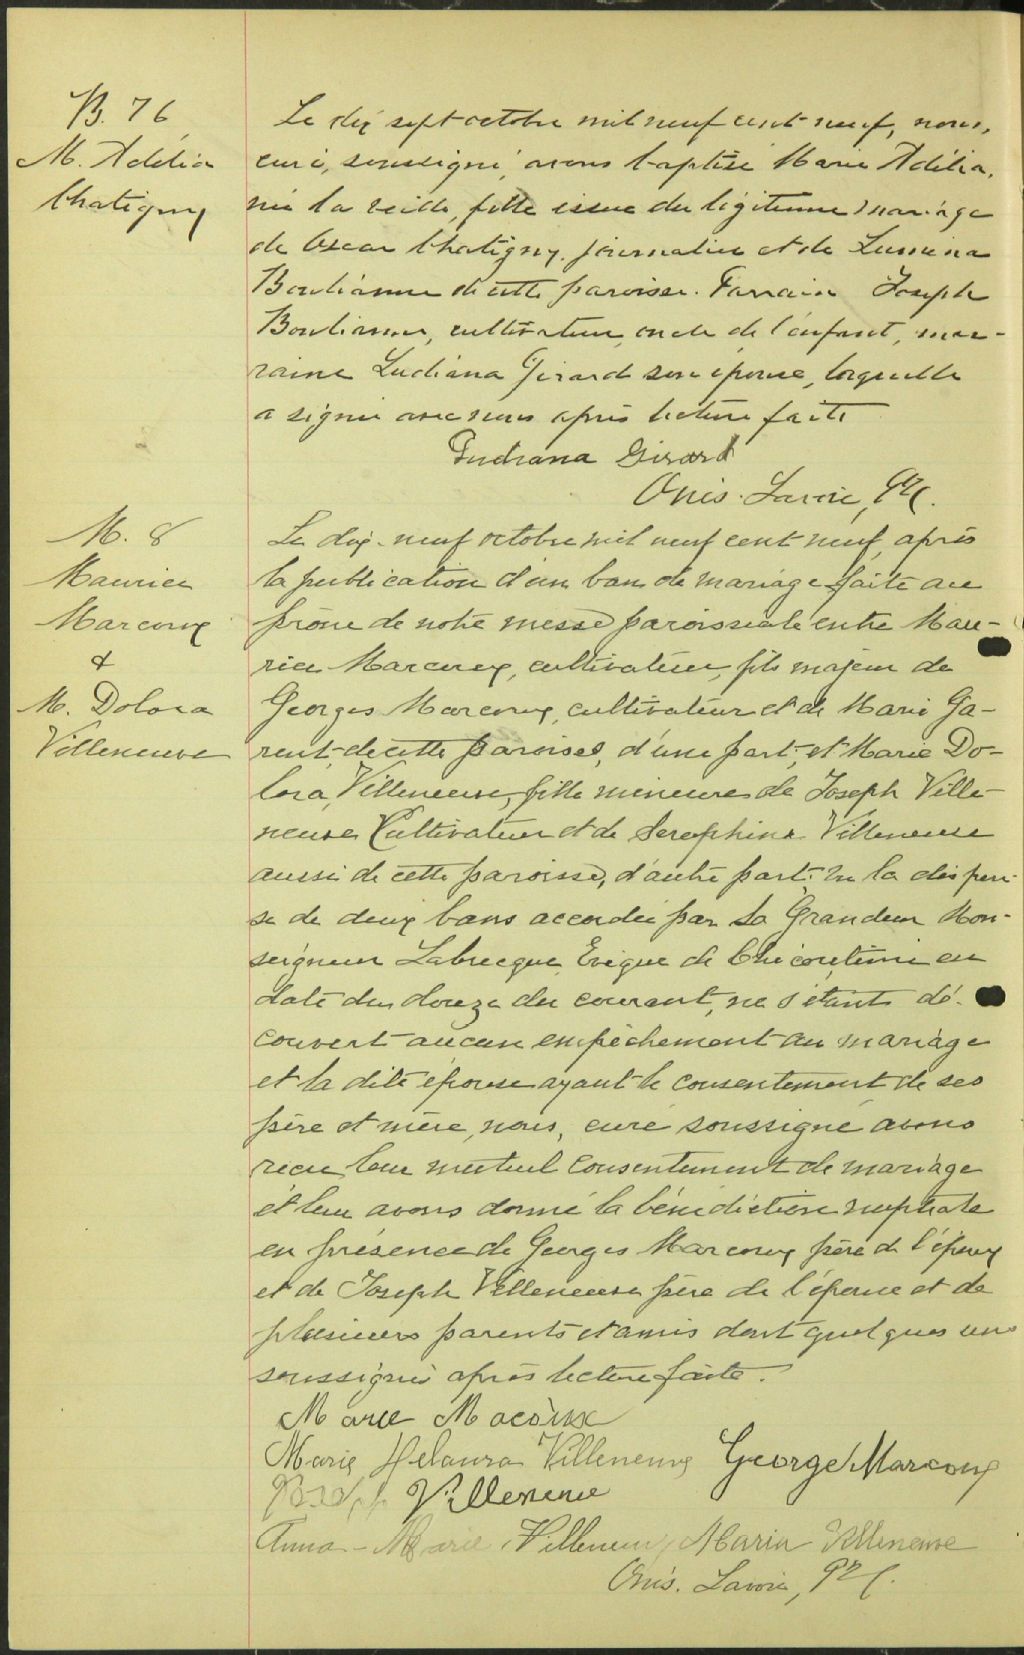 B. 76
M. Adélia
Chatigny
Le dix sept octobre mil neuf cent neuf, nous,
curé, soussigné, avons baptisé Marie Adélia,
née la veille, fille issue du légitime mariage
de Oscar Chatigny, journalier et de Lumina
Boulianne de cette paroisse. Parrain Joseph
Boulianne, cultivateur, oncle de l'enfant, mar-
raine Ludiana Girard son épouse, laquelle
a signé avec nous après lecture faite
Ludiana Girard
Onés. Lavoie, Ptr C.
M. 8
Maurice
Marcoux
&
M. Dolora
Villeneuve
Le dix-neuf octobre mil neuf cent neuf, après
la publication d'un ban de mariage faite au
prône de notre messe paroissiale entre Mau-
rice Marcoux, cultivateur, fils majeur de
Georges Marcoux, cultivateur et de Marie Ga-
rent de cette paroisse, d'une part, et Marie Do-
lora Villeneuve, fille mineure de Joseph Ville-
neuve Cultivateur et de Seraphina Villeneuve
aussi de cette paroisse, d'autre part; vu la dispen-
se de deux bans accordée par Sa Grandeur Mon-
seigneur Labrecque Evêque de Chicoutimi en
date du douze du courant, ne s'étant dé-
couvert aucun empêchement au mariage
et la dite épouse ayant le consentement de ses
père et mère, nous, curé soussigné avons
reçu leur mutuel consentement de mariage
et leur avons donné la bénédiction nuptiale
en présence de Georges Marcoux père de l'époux
et de Joseph Villeneuve père de l'épouse et de
plusieurs parents et amis dont quelques uns
soussignés après lecture faite.
Marie Macoux
Marie Délaura Villeneuve George Marcoux
Villeneuve
Anna-Marie Villeneuve Maria Villeneuve
Onés. Lavoie, Ptr C.